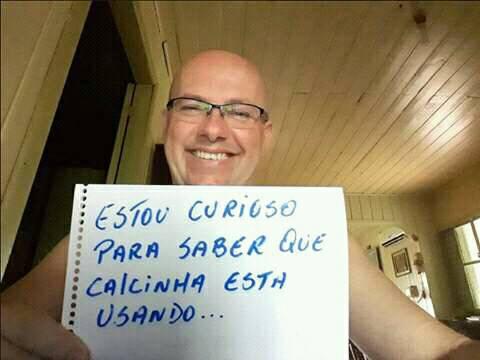 ESTOU CURIOSO
PARA SABER QUE
CALCINHA ESTA
USANDO...